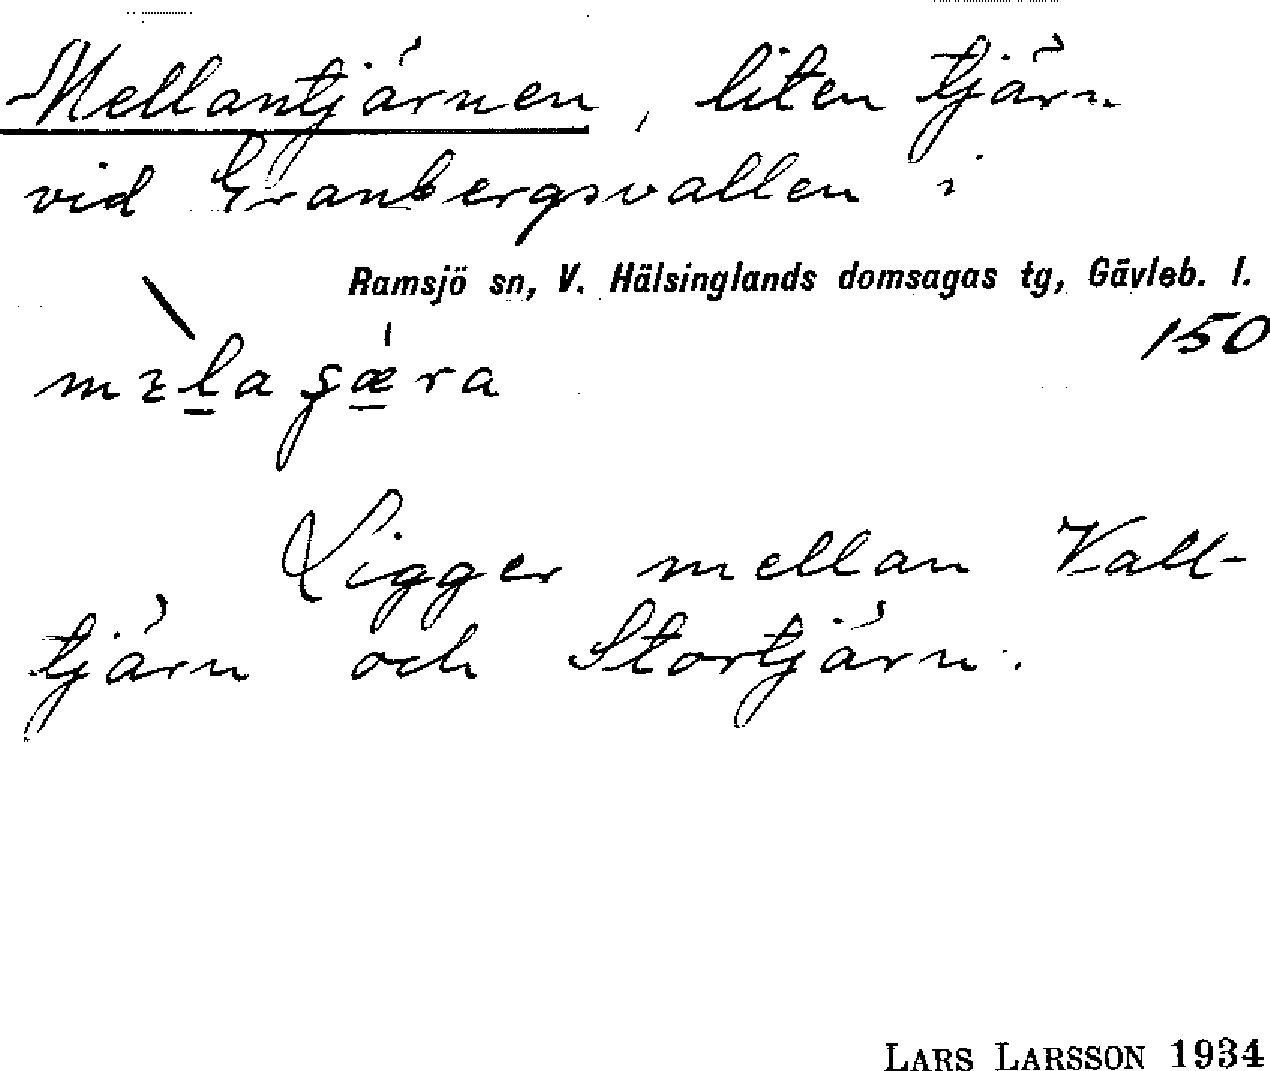 Mellantjärnen, liten tjärn
vid Granbergsvallen i
Ramsjö sn, V. Hälsinglands domsagas tg, Gävleb. l.
150
Ligger mellan Vall-
tjärn och Stortjärn.
LARS LARSSON 1934